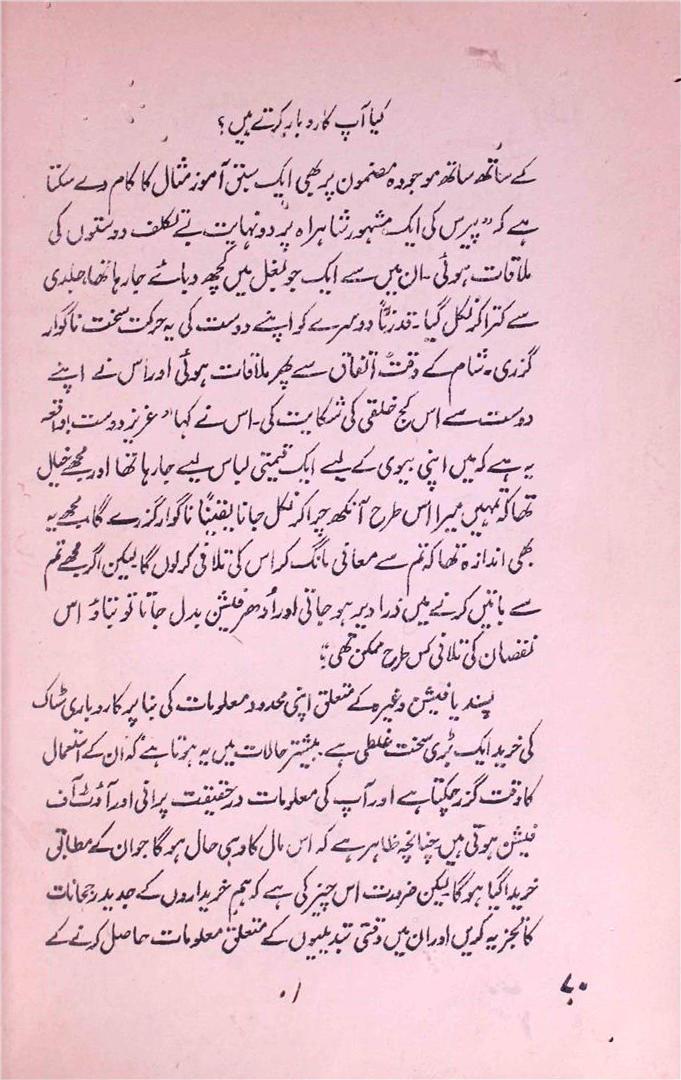 کیا آپ کاروبار کرتے ہیں؟
کے ساتھ ساتھ موجودہ مضمون پر بھی ایک سبق آموز مثال کا کام دے سکتا
ہے کہ "پیرس کی ایک مشہور شاہراہ پر دو نہایت بے تکلف دوستوں کی
ملاقات ہوئی۔ ان میں سے ایک جو بغل میں کچھ دبائے جا رہا تھا، جلدی
سے کترا کر نکل گیا۔ قدرتاً دوسرے کو اپنے دوست کی یہ حرکت سخت ناگوار
گزری۔ شام کے وقت اتفاق سے پھر ملاقات ہوئی اور اس نے اپنے
دوست سے اس کج خلقی کی شکایت کی۔ اس نے کہا "عزیز دوست! واقعہ
یہ ہے کہ میں اپنی بیوی کے لیے ایک قیمتی لباس لیے جا رہا تھا اور مجھے خیال
تھا کہ تمہیں میرا اس طرح آنکھ چرا کر نکل جانا یقیناً ناگوار گزرے گا۔ مجھے یہ
بھی اندازہ تھا کہ تم سے معافی مانگ کر اس کی تلافی کر لوں گا لیکن اگر مجھے تم
سے باتیں کرنے میں ذرا دیر ہو جاتی اور اُدھر فیشن بدل جاتا تو بتاؤ اس
نقصان کی تلافی کس طرح ممکن تھی؟"
پسند یا فیشن وغیرہ کے متعلق اپنی محدود معلومات کی بنا پر کاروباری سٹاک
کی خرید ایک بڑی سخت غلطی ہے۔ بیشتر حالات میں یہ ہوتا ہے کہ ان کے استعمال
کا وقت گزر چکتا ہے اور آپ کی معلومات درحقیقت پرانی اور آؤٹ آف
فیشن ہوتی ہیں چنانچہ ظاہر ہے کہ اس مال کا وہی حال ہو گا جو ان کے مطابق
خریدا گیا ہو گا لیکن ضرورت اس چیز کی ہے کہ ہم خریداروں کے جدید رجحانات
کا تجزیہ کریں اور ان میں وقتی تبدیلیوں کے متعلق معلومات حاصل کرنے کے